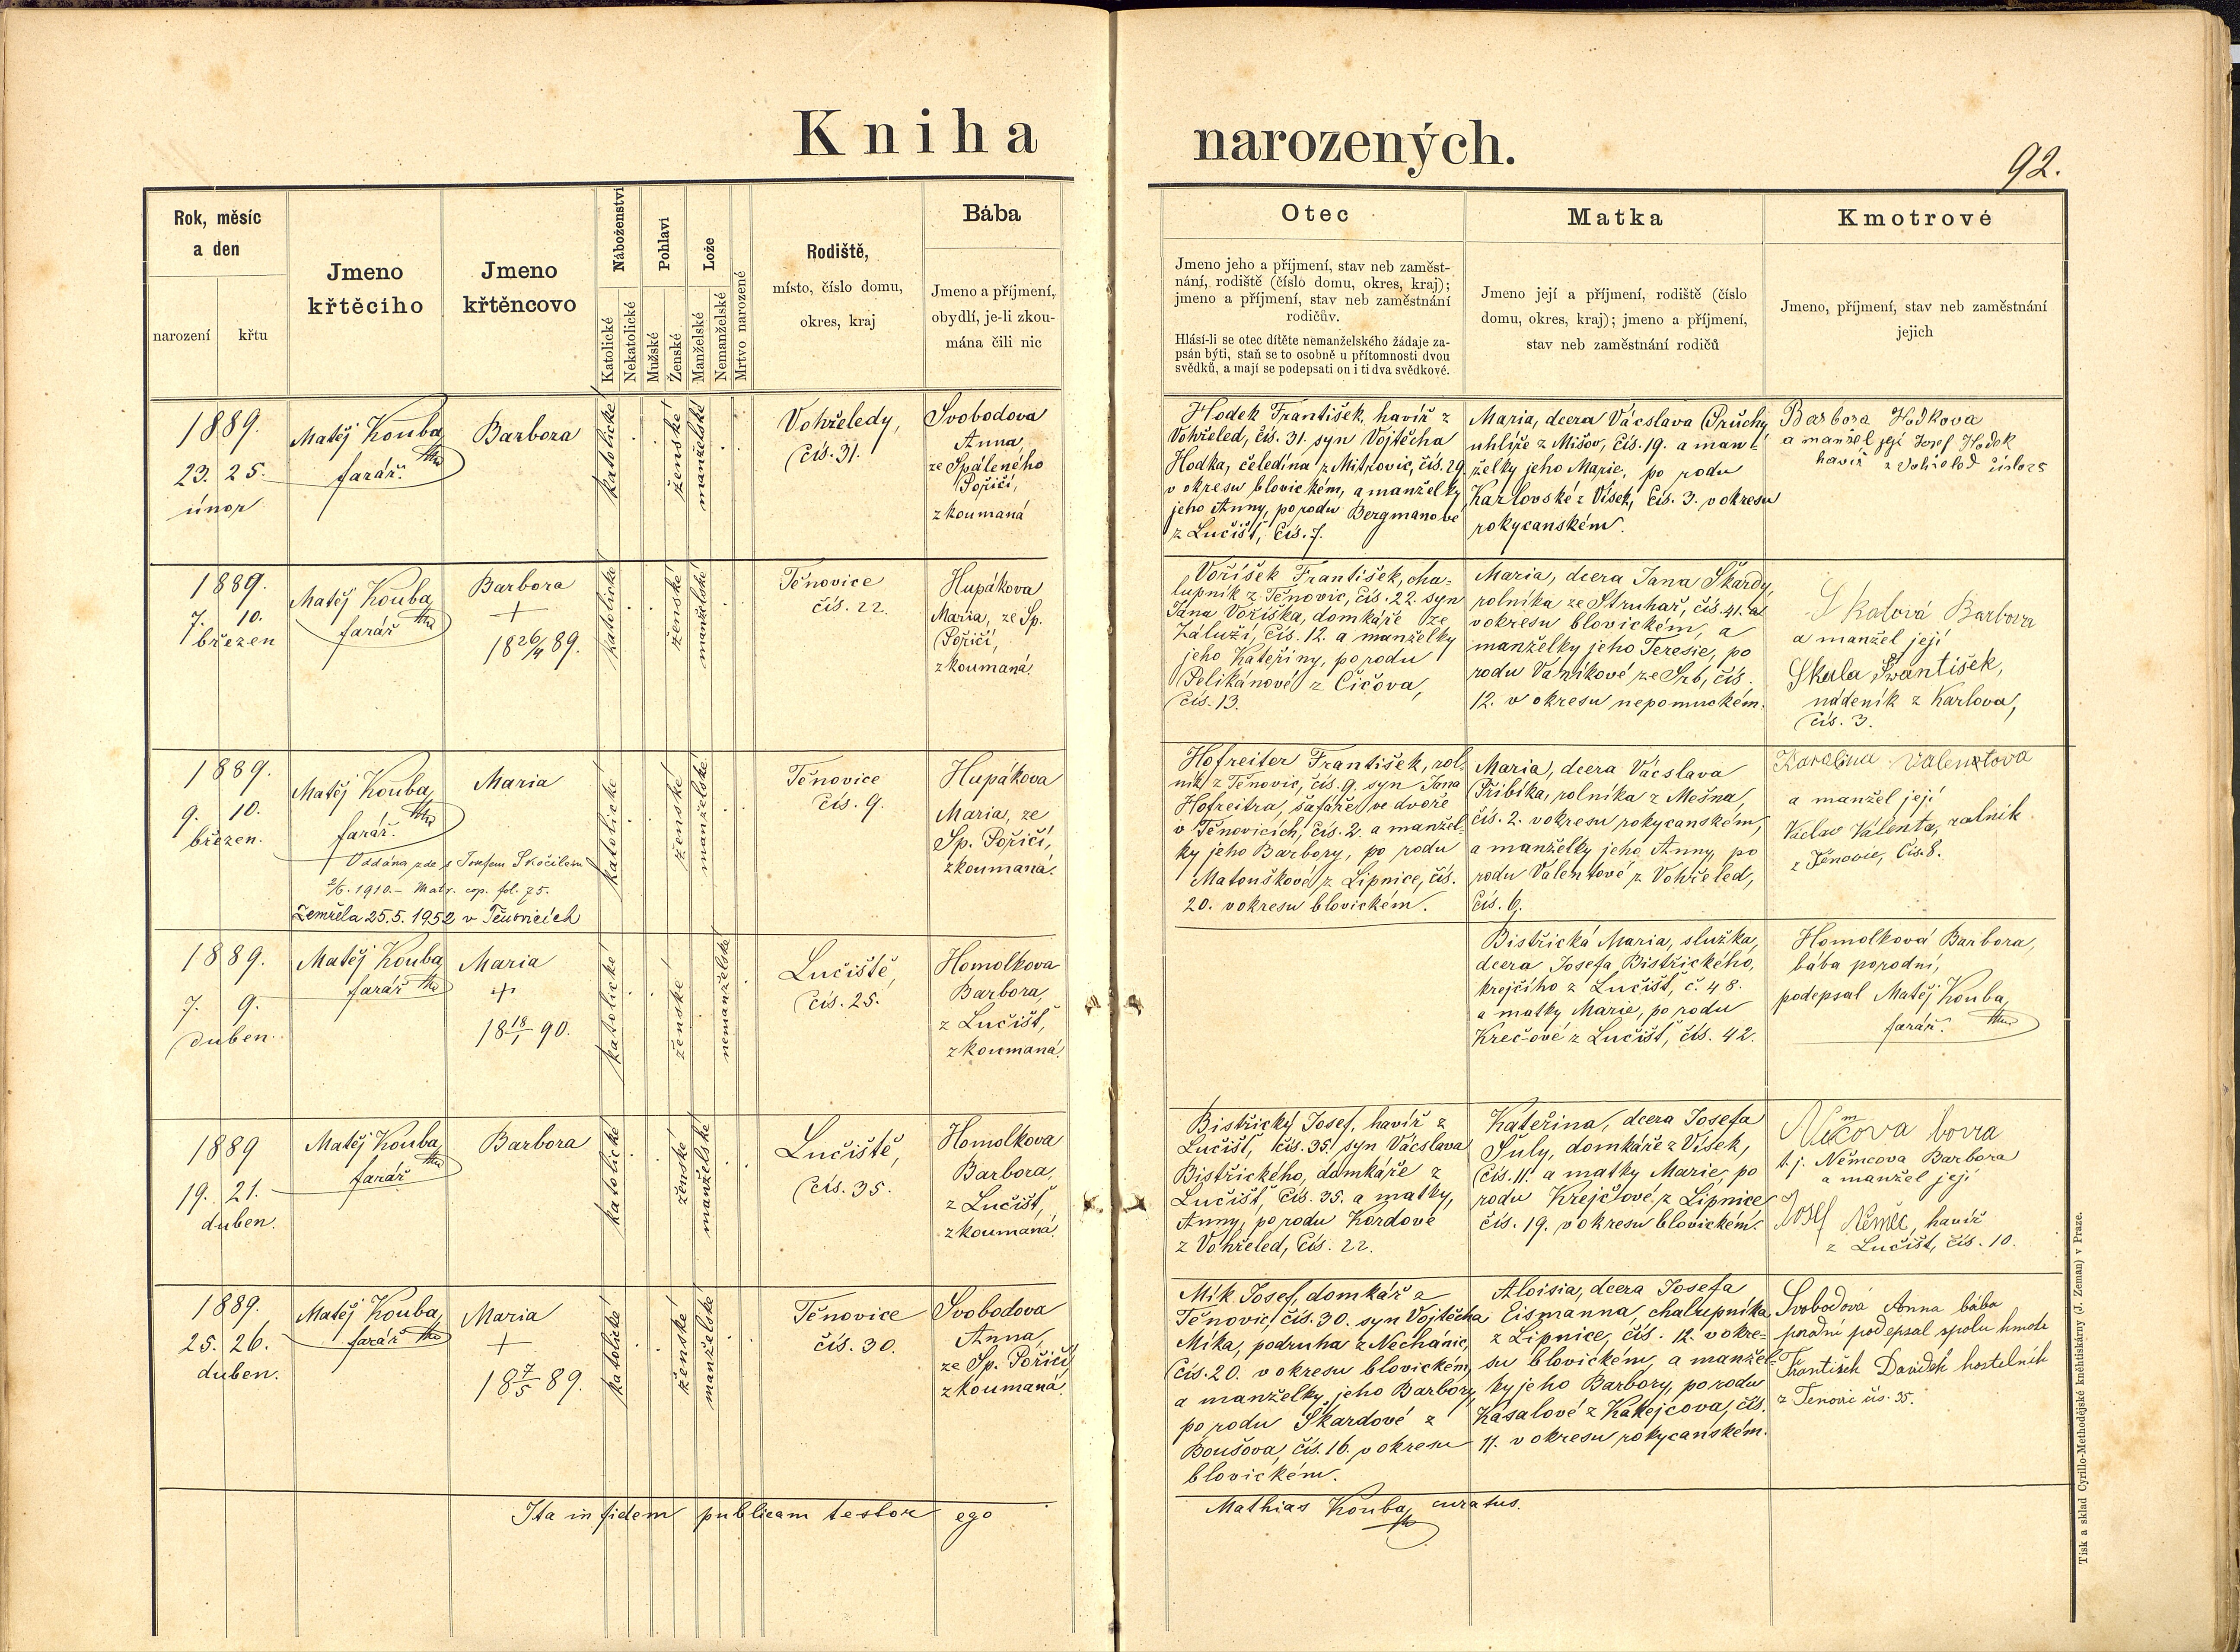 Kniha narozených.
92.
Rok, měsíc
a den
narození
křtu
Jmeno
křtěcího
Jmeno
křtěncovo
Náboženství
Katolické
Nekatolické
Pohlaví
Mužské
Ženské
Lože
Manželské
Nemanželské
Mrtvo narozené
Rodiště,
místo, číslo domu,
okres, kraj
Bába
Jmeno a příjmení,
obydlí, je-li zkou-
mána čili nic
Otec
Jmeno jeho a příjmení, stav neb zaměst-
nání, rodiště (číslo domu, okres, kraj);
jmeno a příjmení, stav neb zaměstnání
rodičův.
Hlásí-li se otec dítěte nemanželského žádaje za-
psán býti, staň se to osobně u přítomnosti dvou
svědků, a mají se podepsati on i ti dva svědkové.
Matka
Jmeno její a příjmení, rodiště (číslo
domu, okres, kraj); jmeno a příjmení,
stav neb zaměstnání rodičů
Kmotrové
Jmeno, příjmení, stav neb zaměstnání
jejich
1889.
23. 25.
únor
Matěj Kouba
farář.
Barbora
katolické
ženské
manželské
Vohřeledy,
čís. 31.
Svobodova
Anna
ze Spáleného
Poříčí,
zkoumaná
Hodek František, havíř z
Vohřeled, čís. 31. syn Vojtěcha
Hodka, čeledína z Mitrovic, čís. 29.
v okresu blovickém, a manželky
jeho Anny, po rodu Bergmanové
z Lučišť, čís. 7.
Maria, dcera Vácslava Průchy
uhlíře z Mišov, čís. 19. a man-
želky jeho Marie, po rodu
Karlovské z Vísek, čís. 3. v okresu
rokycanském.
Barbora Hodkova
a manžel její Josef Hodek
havíř z Vohřeled číslo 25
1889.
7. 10.
březen
Matěj Kouba
farář
Barbora
+
18 26/4 89.
katolické
ženské
manželské
Těnovice
čís. 22.
Hupákova
Maria, ze Sp.
Poříčí,
zkoumaná.
Voříšek František, cha-
lupník z Těnovic, čís. 22. syn
Jana Voříška, domkáře ze
Záluží, čís. 12. a manželky
jeho Kateřiny, po rodu
Pelikánové z Čičova,
čís. 13.
Maria, dcera Jana Škardy,
rolníka ze Struhař, čís. 41. a
v okresu blovickém, a
manželky jeho Teresie, po
rodu Vaníkové ze Srb, čís.
12. v okresu nepomuckém.
Skalová Barbora
a manžel její
Skala František,
nádeník z Karlova,
čís. 3.
1889.
9. 10.
březen.
Matěj Kouba,
farář.
Maria
Oddána zde s Josefem Skočilem
2/6. 1910. - Matr. cop. fol. 75.
Zemřela 25.5.1952 v Těnovicích
katolické
ženské
manželské
Těnovice
čís. 9.
Hupákova
Maria, ze
Sp. Poříčí,
zkoumaná.
Hofreiter František, rol-
ník z Těnovic, čís. 9. syn Jana
Hofreitra, šafáře ve dvoře
v Těnovicích, čís. 2. a manžel-
ky jeho Barbory, po rodu
Matouškové z Lipnice, čís.
20. v okresu blovickém.
Maria, dcera Vácslava
Přibíka, rolníka z Mešna,
čís. 2. v okresu rokycanském,
a manželky jeho Anny, po
rodu Valentové z Vohřeled,
čís. 6.
Karolina Valentova
a manžel její
Václav Valenta, rolník
z Těnovic, čís. 8.
1889.
7. 9.
duben.
Matěj Kouba
farář
Maria
+
18 18/1 90.
katolické
ženské
nemanželské
Lučiště,
čís. 25.
Homolkova
Barbora,
z Lučišť,
zkoumaná.
Bistřická Maria, služka,
dcera Josefa Bistřického,
krejčího z Lučišť, č. 48.
a matky Marie, po rodu
Krečové z Lučišť, čís. 42.
Homolková Barbora,
bába porodní,
podepsal Matěj Kouba,
farář.
1889
19. 21.
duben.
Matěj Kouba,
farář
Barbora
katolické
ženské
manželské
Lučiště,
čís. 35.
Homolkova
Barbora,
z Lučišť,
zkoumaná.
Bistřický Josef, havíř z
Lučišť, čís. 35. syn Vácslava
Bistřického, domkáře z
Lučišť, čís. 35. a matky,
Anny, po rodu Kordové
z Vohřeled, čís. 22.
Kateřina, dcera Josefa
Šuly, domkáře z Vísek,
čís. 11. a matky Marie, po
rodu Krejčové, z Lipnice
čís. 19. v okresu blovickém.
t. j. Němcova Barbora
a manžel její
Josef Němec, havíř
z Lučišť, čís. 10.
1889.
25. 26.
duben.
Matěj Kouba,
farář
Maria
+
18 7/5 89.
katolické
ženské
manželské
Těnovice
čís. 30.
Svobodova
Anna,
ze Sp. Poříčí,
zkoumaná.
Mík Josef, domkář z
Těnovic, čís. 30. syn Vojtěcha
Míka, podruha z Nechánic,
čís. 20. v okresu blovickém,
a manželky jeho Barbory,
po rodu Škardové z
Boušova, čís. 16. v okresu
blovickém.
Aloisia, dcera Josefa
Eismanna, chalupníka
z Lipnice, čís. 12. v okre-
su blovickém, a manžel-
ky jeho Barbory, po rodu
Kasalové z Kakejcova, čís.
11. v okresu rokycanském.
Svobodová Anna bába
podepsal spolu kmotr
František Davídek hostelník
z Tenovic čís. 35.
Ita in fidem publicam testor ego
Mathias Kouba, curatus.
Tisk a sklad Cyrillo-Methodějské knihtiskárny (J. Zeman) v Praze.